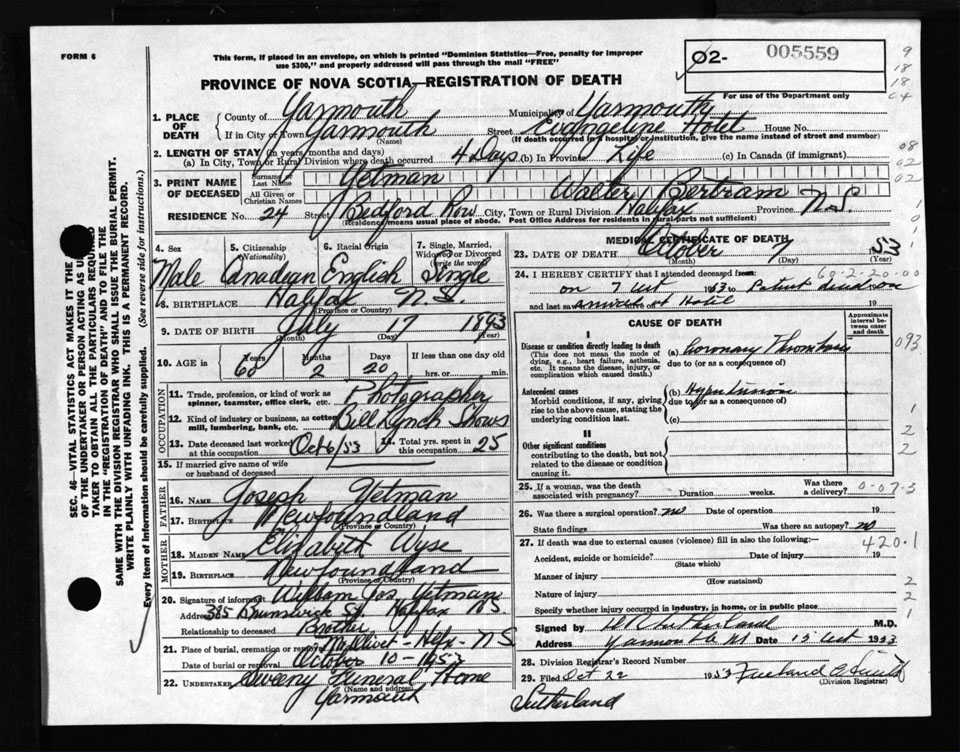 FORM 6
This form, if placed in an envelope, on which is printed "Dominion Statistics—Free, penalty for improper
use $300," and properly addressed will pass through the mail "FREE"
02- 005559
For use of the Department only
PROVINCE OF NOVA SCOTIA—REGISTRATION OF DEATH
SEC. 46—VITAL STATISTICS ACT MAKES IT THE
OF THE UNDERTAKER OR PERSON ACTING AS U
TAKER TO OBTAIN ALL THE PARTICULARS REQUIRED
IN THE "REGISTRATION OF DEATH" AND TO FILE THE
SAME WITH THE DIVISION REGISTRAR WHO SHALL ISSUE THE BURIAL PERMIT.
WRITE PLAINLY WITH UNFADING INK. THIS IS A PERMANENT RECORD.
Every item of Information should be carefully supplied. (See reverse side for instructions.)
1. PLACE OF DEATH
County of Yarmouth Municipality of Yarmouth
If in City or Town Yarmouth Street Evangeline Hotel House No.
(Name) (If death occurred in a hospital or institution, give the name instead of street and number)
2. LENGTH OF STAY (in years, months and days)
(a) In City, Town or Rural Division where death occurred 4 Days (b) In Province Life (c) In Canada (if immigrant)
3. PRINT NAME OF DECEASED
Surname or Last Name Yetman
All Given or Christian Names Walter Bertram
RESIDENCE No. 24 Street Bedford Row City, Town or Rural Division Halifax Province N.S.
Residence means usual place of abode. Post Office Address for residents in rural parts not sufficient)
4. Sex Male
5. Citizenship (Nationality) Canadian
6. Racial Origin English
7. Single, Married, Widowed or Divorced (write the word) Single
8. BIRTHPLACE Halifax N.S.
(Province or Country)
9. DATE OF BIRTH July 17 1893
(Month) (Day) (Year)
10. AGE in Years 60 Months 2 Days 20 If less than one day old
hrs. or min.
OCCUPATION
11. Trade, profession, or kind of work as spinner, teamster, office clerk, etc. Photographer
12. Kind of industry or business, as cotton mill, lumbering, bank, etc. Bill Lynch Shows
13. Date deceased last worked at this occupation Oct 6/53 14. Total yrs. spent in this occupation 25
15. If married give name of wife or husband of deceased
FATHER
16. NAME Joseph Yetman
17. BIRTHPLACE Newfoundland
(Province or Country)
MOTHER
18. MAIDEN NAME Elizabeth Wyse
19. BIRTHPLACE Newfoundland
(Province or Country)
20. Signature of informant William Jos. Yetman
Address 385 Brunswick St Halifax N.S.
Relationship to deceased Brother
21. Place of burial, cremation or removal Mt Olivet - Hfx - N S
Date of burial or removal October 10 - 1953
22. UNDERTAKER Sweeny Funeral Home
(Name and address)
Yarmouth
MEDICAL CERTIFICATE OF DEATH
23. DATE OF DEATH October 7 1953
(Month) (Day) (Year)
24. I HEREBY CERTIFY that I attended deceased from 60-2-20-00
on 7 Oct 1953 to
and last saw alive on 19
CAUSE OF DEATH
Approximate interval between onset and death
Disease or condition directly leading to death
(This does not mean the mode of dying, e.g., heart failure, asthenia, etc. It means the disease, injury, or complication which caused death.)
(a) Coronary Thrombosis
due to (or as a consequence of)
093
Antecedent causes
Morbid conditions, if any, giving rise to the above cause, stating the underlying condition last.
(b) Hypertension
due to (or as a consequence of)
(c)
II
Other significant conditions
contributing to the death, but not related to the disease or condition causing it.
25. If a woman, was the death associated with pregnancy? Duration weeks. Was there a delivery? 0-07-3
26. Was there a surgical operation? no Date of operation 19
State findings Was there an autopsy? no
27. If death was due to external causes (violence) fill in also the following:— 420.1
Accident, suicide or homicide? Date of injury 19
(State which)
Manner of injury
(How sustained)
Nature of injury
Specify whether injury occurred in industry, in home, or in public place
Signed by M.D.
Address Yarmouth Date 12 Oct 1953
28. Division Registrar's Record Number
29. Filed Oct 22 1953
(Division Registrar)
Sutherland